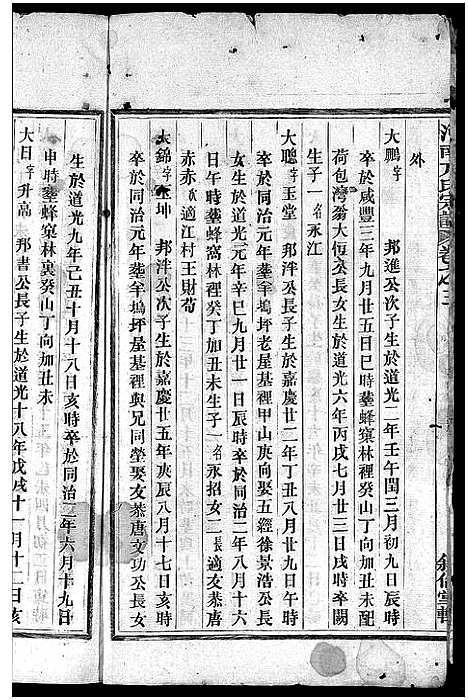 外
大鵬字 邦進公次子生於道光二年壬午閏三月初九日辰時
卒於咸豐三年九月廿五日巳時塟蜂窠林裡癸山丁向加丑未配
荷包灣翁大恆公長女生於道光六年丙戌七月廿三日戌時卒闕
生子一名永江
大聰字玉堂 邦泮公長子生於嘉慶廿二年丁丑八月廿九日午時
卒於同治元年塟羊塢坪老屋基裡甲山庚向娶五經徐景浩公長
女生於道光元年辛巳九月廿一日辰時卒於同治二年八月十六
日午時塟蜂窩林裡癸丁加丑未生子一名永招女二長適友慕唐
赤赤適江村王財苟
大錦字玉坤 邦泮公次子生於嘉慶廿五年庚辰八月十七日亥時
卒於同治元年塟羊塢坪屋基裡與兄同塋娶友慕唐文功公長女
生於道光九年己丑十月十八日亥時卒於同治二年六月十九日
申時塟蜂窠林裏癸山丁向加丑未
大日字升高 邦書公長子生於道光十八年戊戌十一月十二日亥